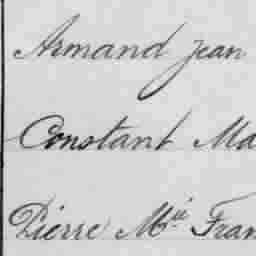 Armand Jean
Constant Ma
Pierre Mie Fran